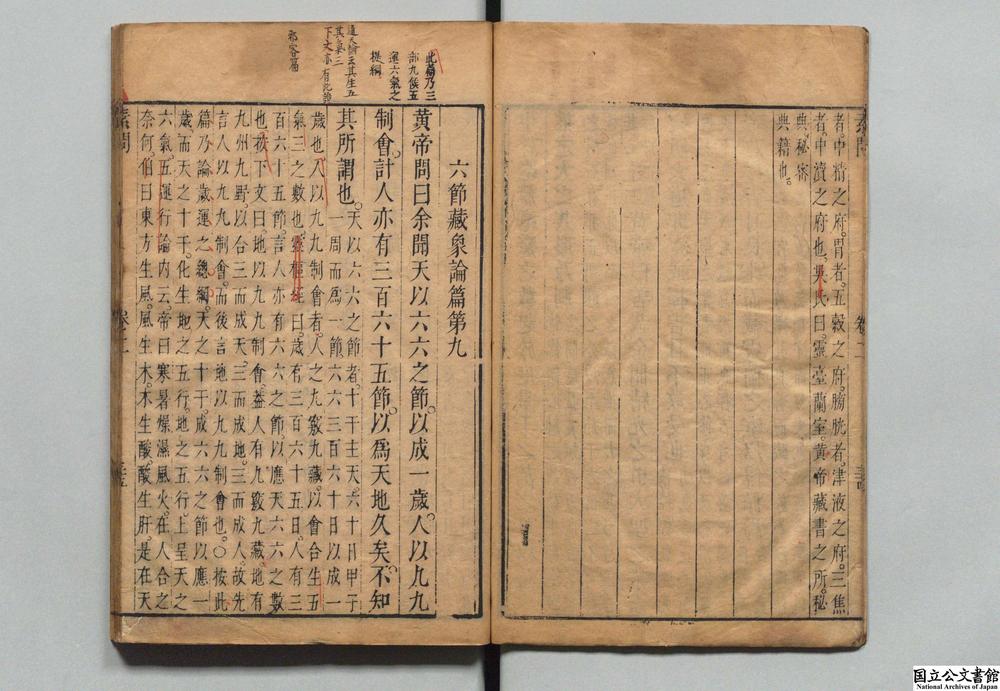 者中精之府胃者五穀之府膀胱者津液之府三焦
者中瀆之府也吳氏曰靈臺蘭室黃帝藏書之所秘
典秘密
典籍也
卷二
六節藏象論篇第九
黃帝問曰余聞天以六六之節以成一歲人以九九
制會計人亦有三百六十五節以爲天地久矣不知
其所謂也天以六六之節者十干主天六十日甲子
一周而爲一節六六三百六十日以成一
歲也人以九九制會者人之九竅九藏以會合生五
氣三之數也靈樞經曰歲有三百六十五日人有三
百六十五節言人亦有六六之節以應天六六之數
也按下文曰地以九九制會蓋人有九竅九藏地有
九州九野以合三而成天三而成地三而成人故先
言人以九九制會而後言地以九九制會也○按此
篇乃論歲運之總綱天之十干成六六之節以應一
歲而天之十干化生地之五行地之五行上呈天之
六氣五運行論內云帝曰寒暑燥濕風火在人合之
奈何伯曰東方生風風生木木生酸酸生肝是在天
素問
卷二
此篇乃三
部九候五
運六氣之
提綱
其氣三
邪客篇
国立公文書館
National Archives of Japan